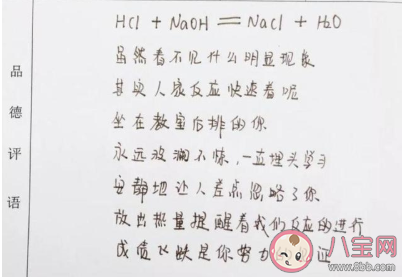 品德评语
HCl + NaOH = NaCl + H2O
虽然看不见什么明显现象
其实人家反应快速着呢
坐在教室后排的你
永远波澜不惊，一直埋头学习
安静地让人差点忽略了你
放出热量提醒着我们反应的进行
成绩飞跃是你努力 证
八宝网
www.8bb.com